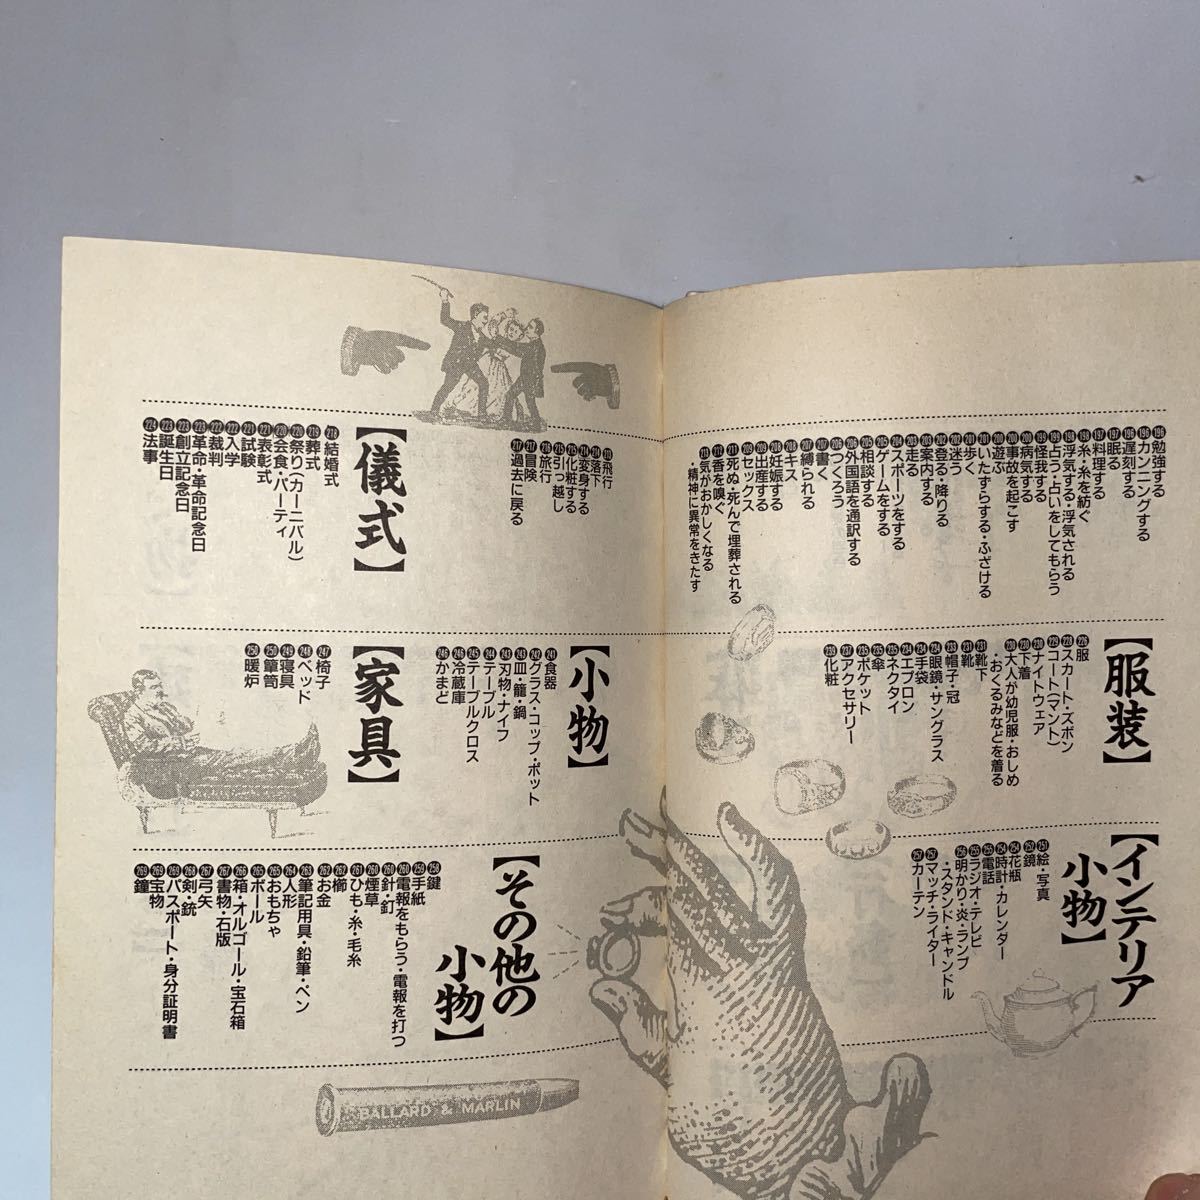 196勉強する
196カンニングする
196遅刻する
197眠る
197料理する
198糸・糸を紡ぐ
198浮気する・浮気される
199占う・占いをしてもらう
199怪我する
200病気する
200事故を起こす
200遊ぶ
201いたずらする・ふざける
201歩く
202迷う
202登る・降りる
203案内する
203走る
204スポーツをする
205ゲームをする
205相談する
206外国語を通訳する
206つくろう
207書く
207縛られる
208キス
208妊娠する
209出産する
209セックス
211死ぬ・死んで埋葬される
211香を嗅ぐ
213気がおかしくなる
・精神に異常をきたす
213飛行
214落下
214変身する
215化粧する
215引っ越し
216旅行
217冒険
217過去に戻る
【儀式】
218結婚式
219葬式
220祭り(カーニバル)
220会食・パーティ
221表彰式
221試験
222入学
222裁判
223革命・革命記念日
223創立記念日
223誕生日
224法事
【服装】
226服
228スカート・ズボン
229コート(マント)
230ナイトウェア
230下着
230大人が幼児服・おしめ
・おくるみなどを着る
231靴下
231靴
233帽子・冠
234眼鏡・サングラス
234手袋
234エプロン
235ネクタイ
235傘
236ポケット
237アクセサリー
239化粧
【小物】
241食器
242グラス・コップ・ポット
243皿・籠・鍋
243刃物・ナイフ
244テーブル
245テーブルクロス
246冷蔵庫
246かまど
【家具】
247椅子
248ベッド
249寝具
250箪笥
250暖炉
【インテリア
小物】
251絵・写真
252鏡
254花瓶
254時計・カレンダー
255電話
255ラジオ・テレビ
256明かり・炎・ランプ
・スタンド・キャンドル
257マッチ・ライター
257カーテン
【その他の
小物】
258鍵
259手紙
260電報をもらう・電報を打つ
260針・釘
260煙草
261ひも・糸・毛糸
262櫛
262お金
263筆記用具・鉛筆・ペン
264人形
265おもちゃ
265ボール
266箱・オルゴール・宝石箱
267書物・石版
267弓矢
268剣・銃
269パスポート・身分証明書
269宝物
269鐘
BALLARD & MARLIN